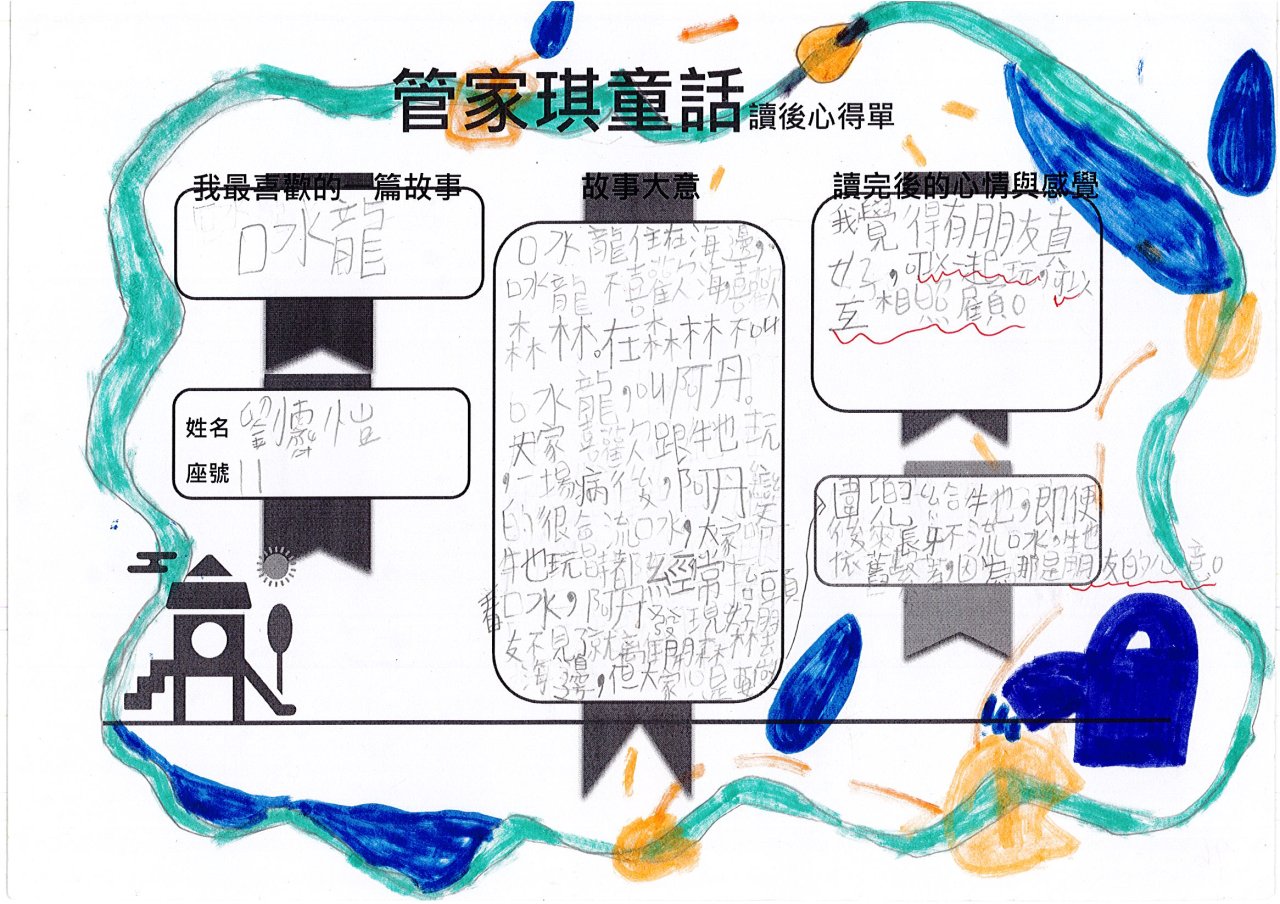 管家琪童話讀後心得單
我最喜歡的一篇故事
口水龍
姓名 劉
座號 11
故事大意
口水龍住在海邊，
口水龍不喜歡海，喜歡
森林。在森林不叫
口水龍，叫阿丹。
大家喜歡跟牠玩
，一場病後，阿丹變
的很會流口水，大家
牠玩時都經常抬頭
看口水，阿丹發現好朋
友不見了就離開森林去
海邊，但大家還是
讀完後的心情與感覺
我覺得有朋友真
好，可以一起玩，可以
互相照顧。
圍兜給牠，即便
後來長牙不流口水，牠也
依舊因為那是朋友的心意。